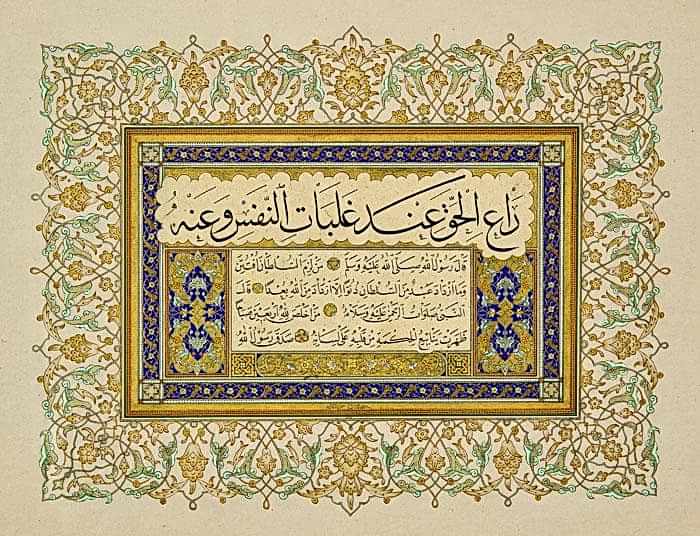 رَاعِ الحَقَّ عِنْدَ غَلَبَاتِ النَّفْسِ وَعَنْهُ
قَالَ رَسُولُ اللهِ صَلَّى اللهُ عَلَيْهِ وَسَلَّمَ مَنْ لَزِمَ السُّلْطَانَ افْتُتِنَ
وَمَا ازْدَادَ عَبْدٌ مِنَ السُّلْطَانِ دُنُوًّا اِلَّا ازْدَادَ مِنَ اللهِ بُعْدًا قَالَ
النَّبِيُّ صَلَوَاتُ الرَّحْمٰنِ عَلَيْهِ وَسَلَامُهُ مَنْ اَخْلَصَ لِلّٰهِ اَرْبَعِينَ صَبَاحًا
ظَهَرَتْ يَنَابِيعُ الْحِكْمَةِ مِنْ قَلْبِهِ عَلَى لِسَانِهِ صَدَقَ رَسُولُ اللهِ